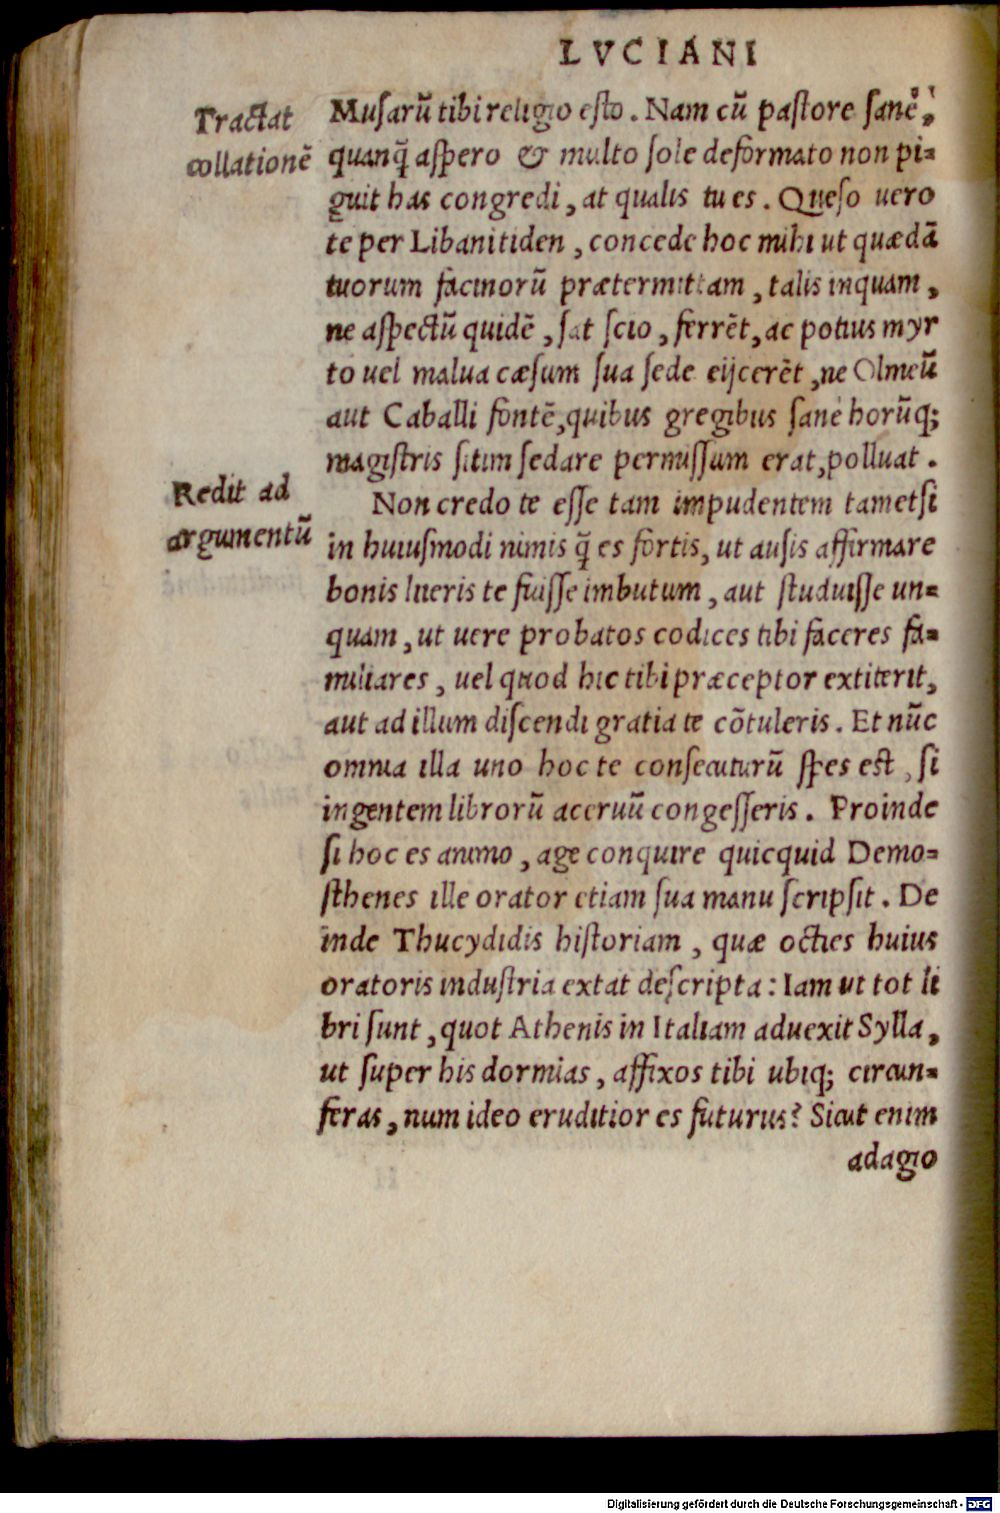 LVCIANI
Tractat
collationē
Muſarũ tibi religio eſto. Nam cũ paſtore ſanè,
quanq̃ aſpero & multo ſole deformato non pi-
guit has congredi, at qualis tu es. Queſo uero
te per Libanitiden, concede hoc mihi ut quædã
tuorum facinorũ prætermittam, talis inquam,
ne aſpectũ quidē, ſat ſcio, ferrēt, ac potius myr
to uel malua cæſum ſua ſede eijcerēt, ne Olmeũ
aut Caballi fontē, quibus gregibus ſane horũq;
magiſtris ſitim ſedare permiſſum erat, polluat.
Redit ad
argumentũ
Non credo te eſſe tam impudentem tametſi
in huiuſmodi nimis q̃ es fortis, ut auſis affirmare
bonis literis te fuiſſe imbutum, aut ſtuduiſſe un-
quam, ut uere probatos codices tibi faceres fa-
miliares, uel quod hic tibi præceptor extiterit,
aut ad illum diſcendi gratia te cõtuleris. Et nũc
omnia illa uno hoc te conſecuturũ ſpes eſt, ſi
ingentem librorũ aceruũ congeſſeris. Proinde
ſi hoc es animo, age conquire quicquid Demo-
ſthenes ille orator etiam ſua manu ſcripſit. De
inde Thucydidis hiſtoriam, quæ octies huius
oratoris induſtria extat deſcripta: Iam ut tot li
bri ſunt, quot Athenis in Italiam aduexit Sylla,
ut ſuper his dormias, affixos tibi ubiq; circun-
feras, num ideo eruditior es futurus? Sicut enim
adagio
Digitalisierung gefördert durch die Deutsche Forschungsgemeinschaft - DFG